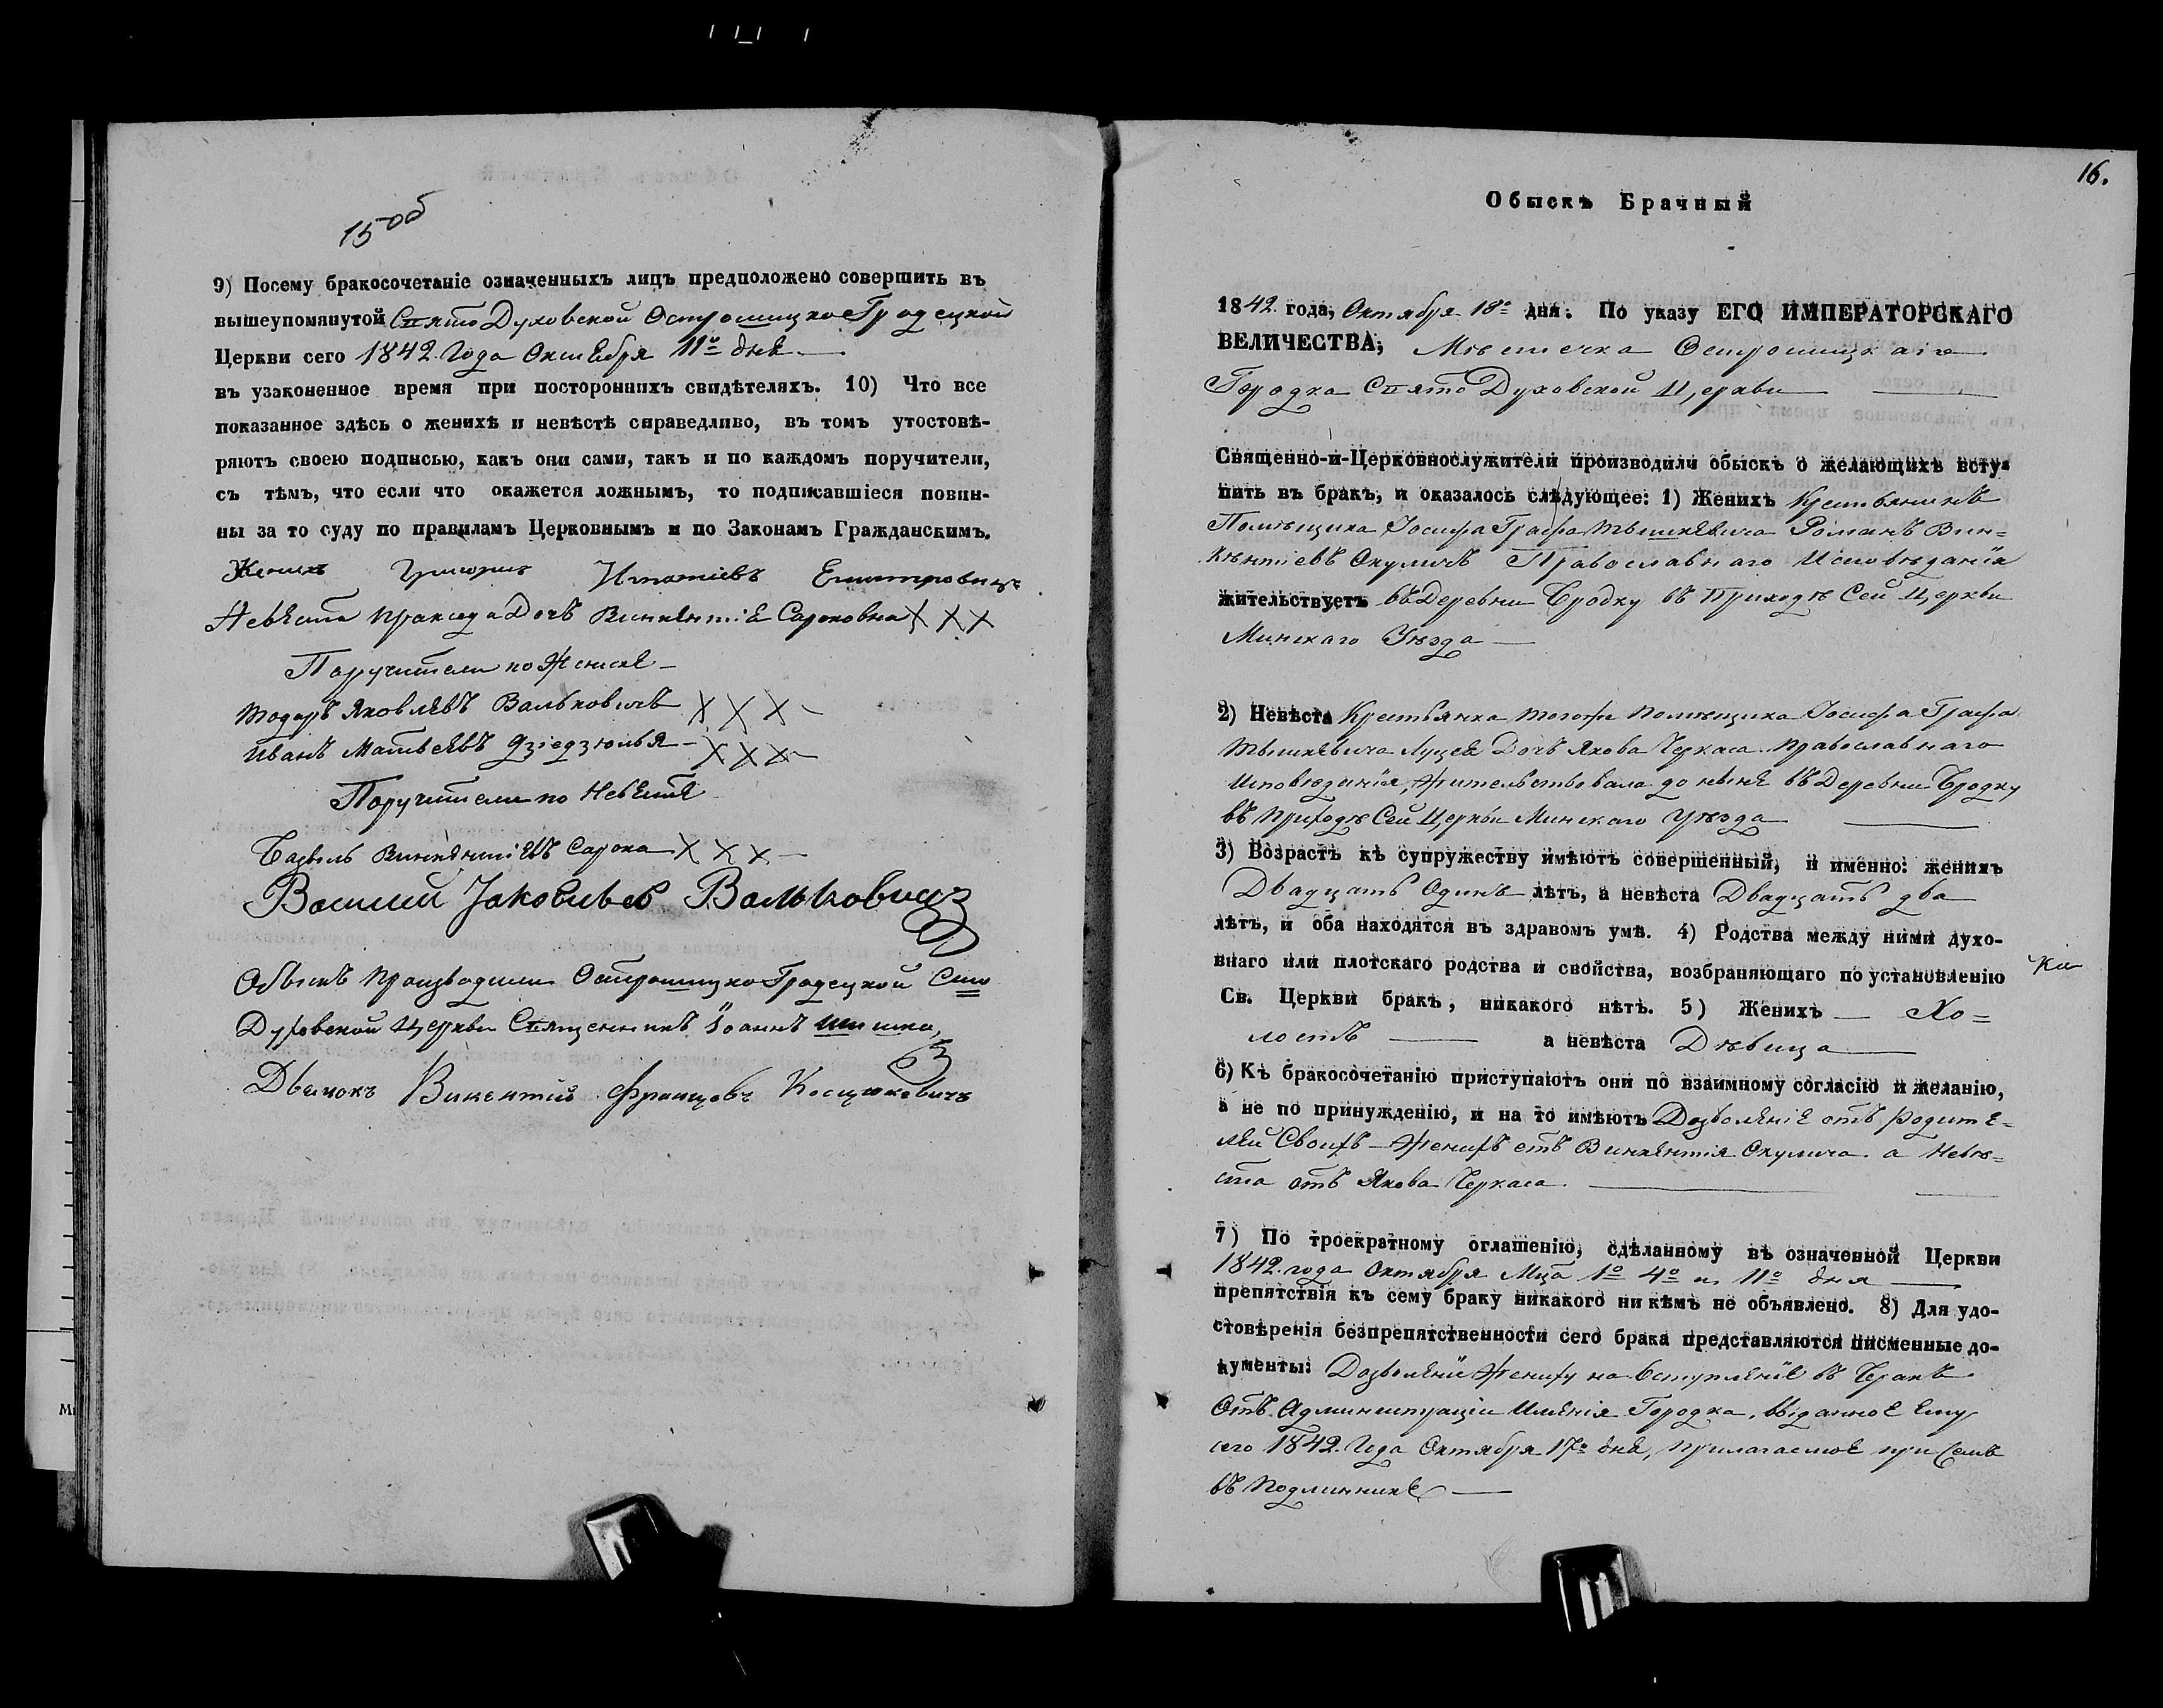 15об
9) Посему бракосочетаніе означенныхъ лицъ предположено совершить въ
вышеупомянутой Свято Духовской Острошицко Градецкой
Церкви сего 1842 Года Октября 11го дня
въ узаконенное время при постороннихъ свидѣтеляхъ. 10) Что все
показанное здѣсь о женихѣ и невѣстѣ справедливо, въ томъ утостовѣ-
ряютъ своею подписью, какъ они сами, такъ и по каждомъ поручители,
съ тѣмъ, что если что окажется ложнымъ, то подписавшіеся повин-
ны за то суду по правиламъ Церковнымъ и по Законамъ Гражданскимъ.
Женихъ Григорій Игнатіевъ
Невеста Пракседа Дочь Викентіе Сароковна X X X
Поручители по Женихе
Тодаръ Яковлевъ Вальковичъ X X X
Иванъ Матвеевъ Дзіедзюлья X X X
Поручители по Невесте
Базыль Викентіевъ Сарока X X X
Василий Яковлевъ Вальковичъ
Обыскъ Производили Острошицко Градецкой Сто
Духовской Церкви Священникъ Іоаннъ Шишко,
Дьячокъ Викентій Францовъ Косцюкевичъ
16.
Обыскъ Брачный
1842 года, Октября 18го дня. По указу ЕГО ИМПЕРАТОРСКАГО
ВЕЛИЧЕСТВА, Мѣстечка Острошицкаго
Городка Свято Духовской Церкви
Священно-и-Церковнослужители производили обыскъ о желающихъ всту-
пить въ бракъ, и оказалось слѣдующее: 1) Женихъ Крестьянинъ
Помѣщика Іосифа Графа Тышкевича Романъ Вин=
кентіевъ Окуличъ Православнаго Исповѣданія
жительствуетъ въ Деревни Бродку въ Приходѣ Сей Церкви
Минскаго Уѣзда
2) Невѣста Крестьянка тогожъ Помѣщика Іосифа Графа
Тышкевича Луцея Дочь Якова Черкаса Православнаго
Исповѣданія, Жительствовала до нынѣ въ Деревни Бродку
въ Приходѣ Сей Церкви Минскаго Уѣзда
3) Возрастъ къ супружеству имѣютъ совершенный, и именно: женихъ
Двадцать Одинъ лѣтъ, а невѣста Двадцать два
лѣтъ, и оба находятся въ здравомъ умѣ. 4) Родства между ними духо-
внаго или плотскаго родства и свойства, возбраняющаго по установленію
Св. Церкви бракъ, никакого нѣтъ. 5) Женихъ Хо=
лостъ а невѣста Дѣвица
6) Къ бракосочетанію приступаютъ они по взаимному согласію и желанію,
а не по принужденію, и на то имѣютъ Дозволеніе отъ Родите-
лей Своихъ - Женихъ отъ Винкентія Окулича а Невѣ=
ста отъ Якова Черкаса
7) По троекратному оглашенію, сдѣланному въ означенной Церкви
1842 года Октября Мца 1го 4го и 11го дня
препятствія къ сему браку никакого ни кѣмъ не объявлено. 8) Для удо-
стовѣренія безпрепятственности сего брака представляются писменные до-
кументы: Дозволеніе Жениху на вступленіе въ Бракъ
Отъ Администраціи Именія Городка, выданное Ему
сего 1842 Года Октября 17го дня, прилагаемое при Семъ
въ Подлиннике